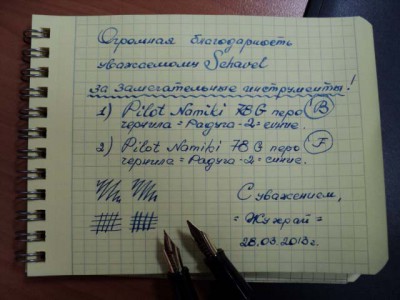 Огромная благодарность
уважаемому Schavel
за замечательные инструменты!
1) Pilot Namiki 78 G перо B
чернила = Радуга-2 = синие.
2) Pilot Namiki 78 G перо F
чернила = Радуга-2 = синие.
С уважением,
= Жухрай =
28.03.2013г.